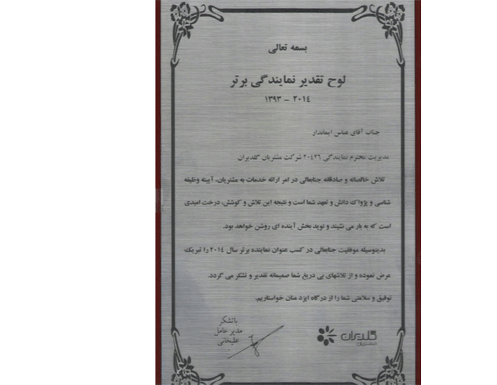 بسمه تعالی
لوح تقدیر نمایندگی برتر
۲۰۱۴ - ۱۳۹۳
جناب آقای عباس ایماندار
مدیریت محترم نمایندگی ۲۰۴۲۶ شرکت مشتریان گلدیران
تلاش خالصانه و صادقانه جنابعالی در امر ارائه خدمات به مشتریان، آیینه وظیفه
شناسی و پژواک دانش و تعهد شما است و نتیجه این تلاش و کوشش، درخت امیدی
است که به بار می نشیند و نوید بخش آینده ای روشن خواهد بود.
بدینوسیله موفقیت جنابعالی در کسب عنوان نماینده برتر سال ۲۰۱۴ را تبریک
عرض نموده و از تلاشهای بی دریغ شما صمیمانه تقدیر و تشکر می گردد.
توفیق و سلامتی شما را از درگاه ایزد منان خواستاریم.
باتشکر
مدیر عامل
گلدیران